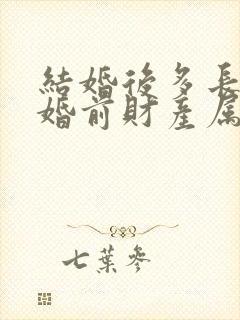 結婚後多長
婚前財產屬
七葉參